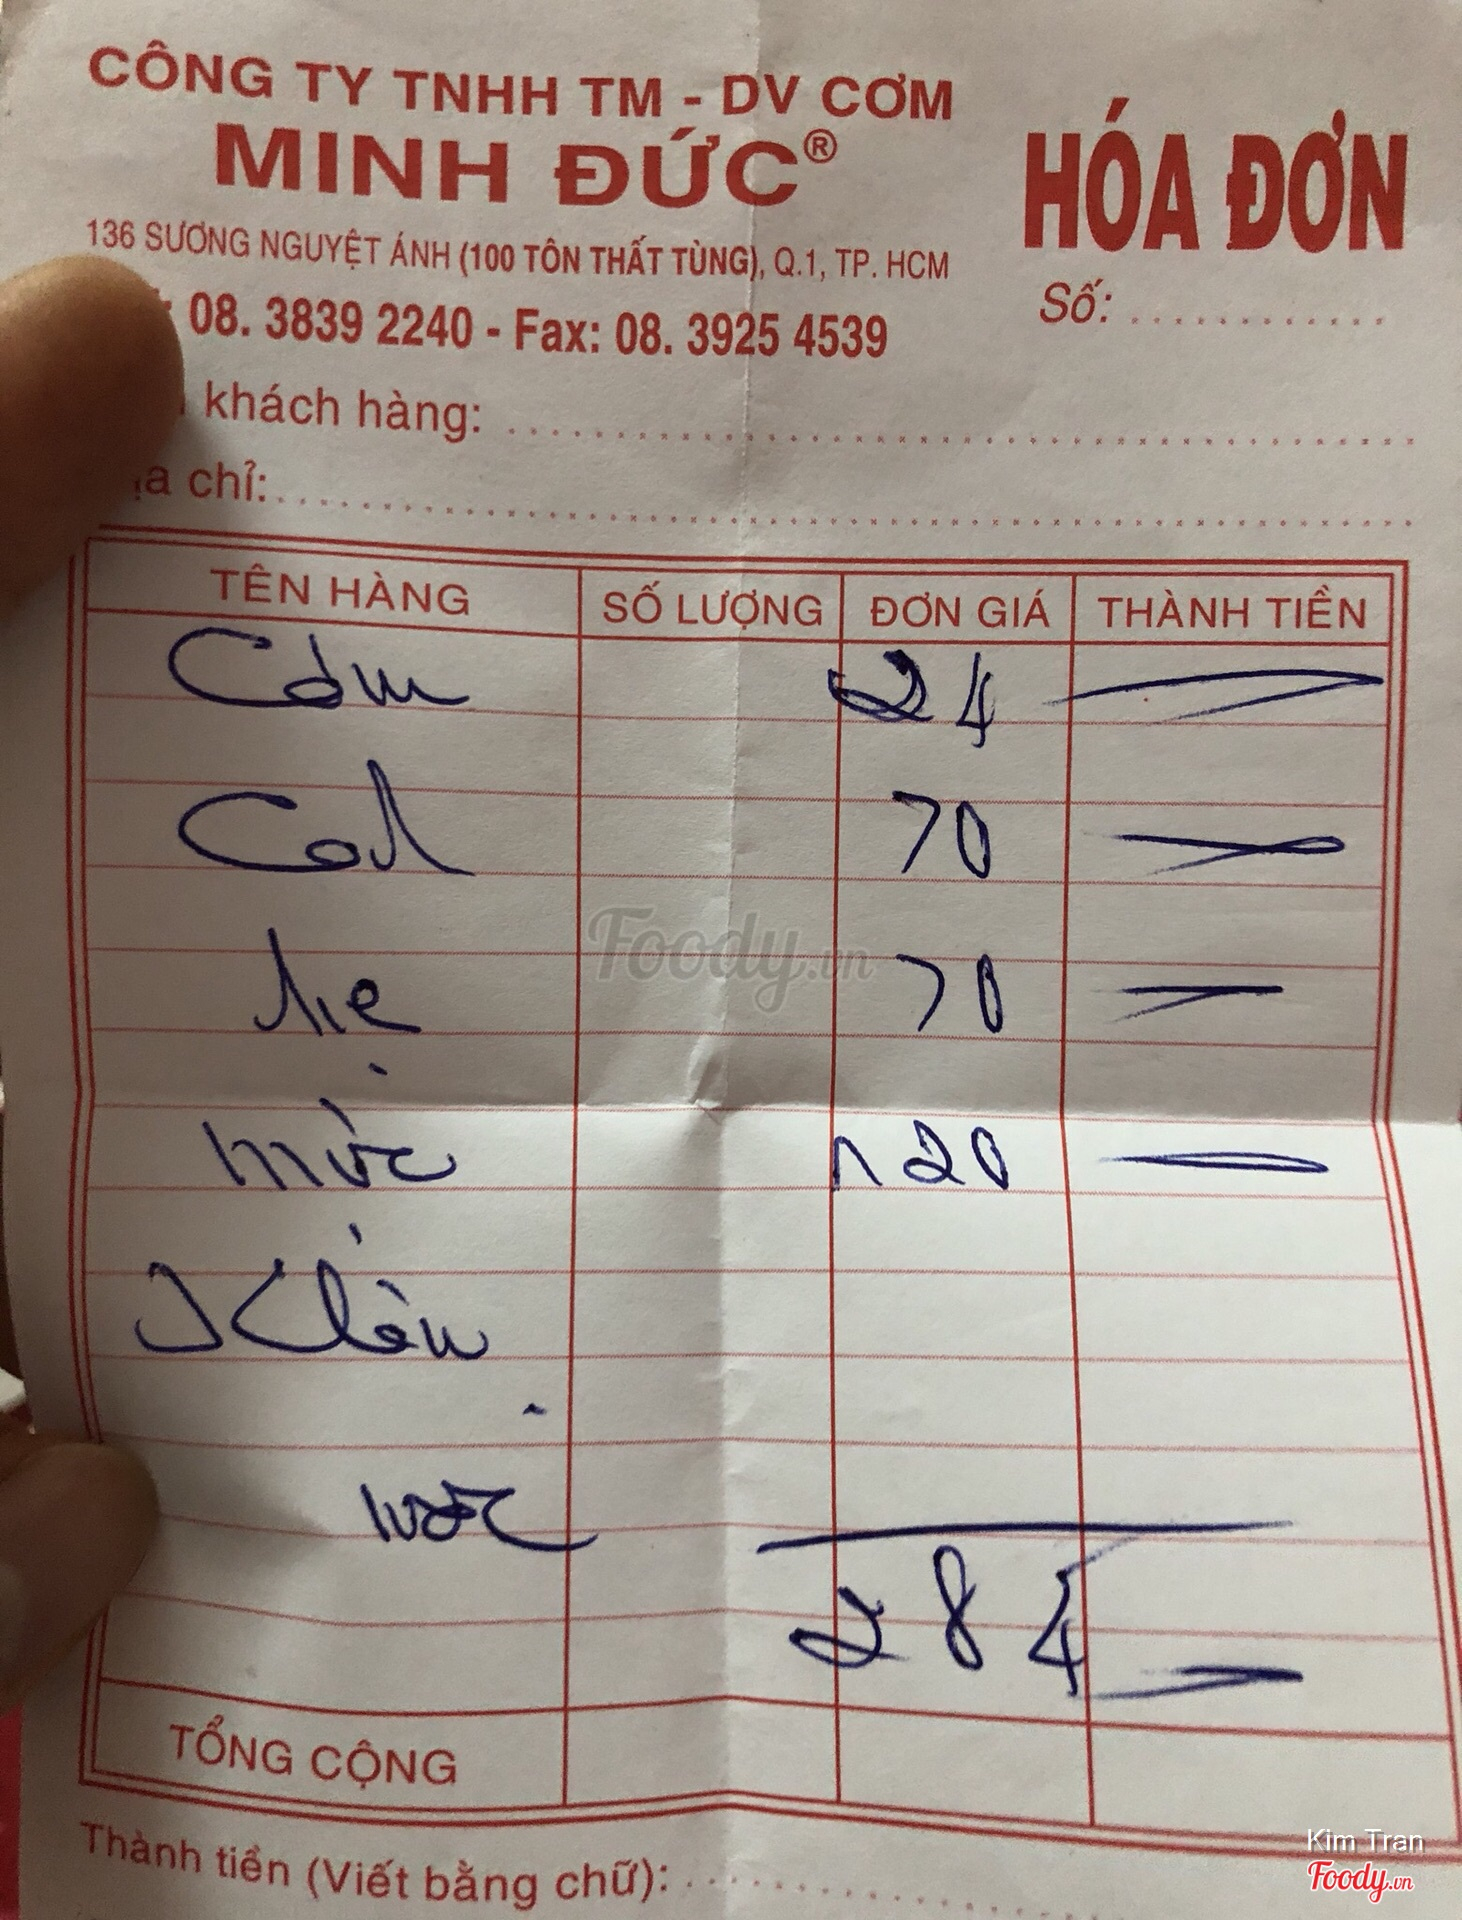 CÔNG TY TNHH TM - DV CƠM
MINH ĐỨC®
HÓA ĐƠN
136 SƯƠNG NGUYỆT ÁNH (100 TÔN THẤT TÙNG), Q.1, TP. HCM
Số: ............
: 08. 3839 2240 - Fax: 08. 3925 4539
khách hàng: ............
ịa chỉ: ............
TÊN HÀNG SỐ LƯỢNG ĐƠN GIÁ THÀNH TIỀN
Cơm 24
Canh 70
70
Foody.vn
mực 120
Khăn
284
TỔNG CỘNG
Thành tiền (Viết bằng chữ): ............
Kim Tran
Foody.vn